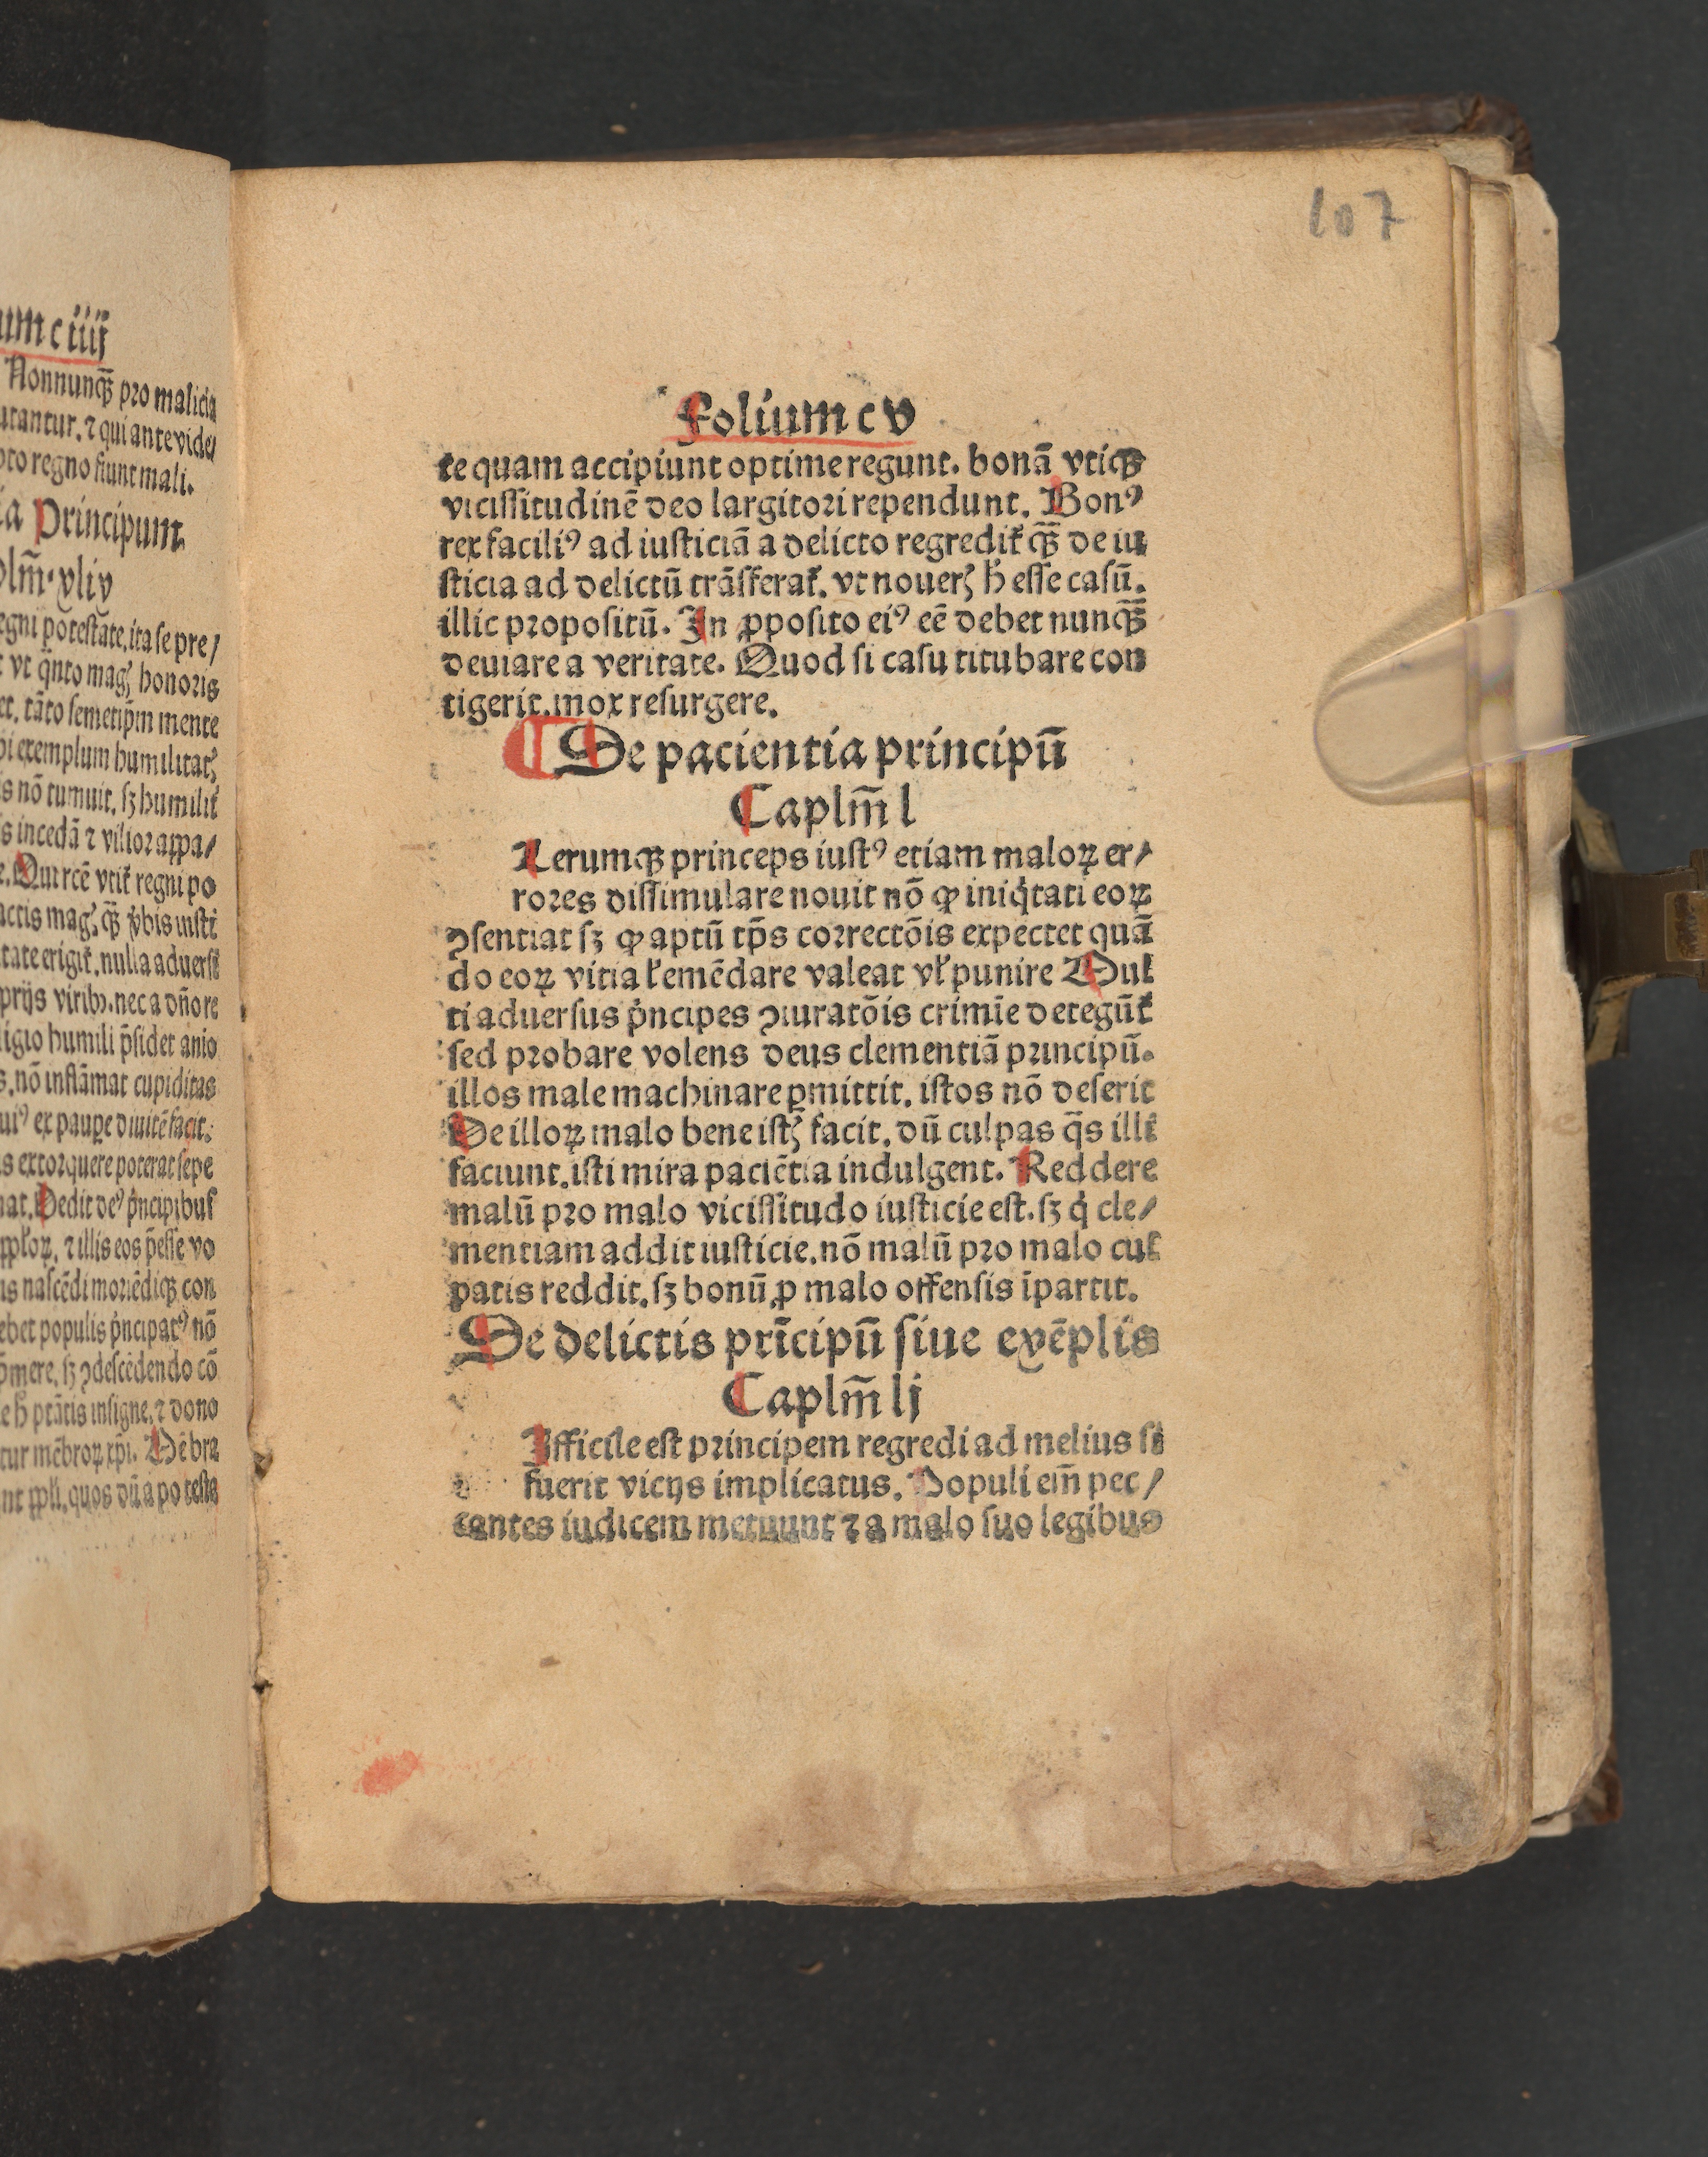 umciiij
Nonnunqꝫ̄ pro malicia
utantur. ⁊ qui ante vide/
pto regno fiunt mali.
ia Principum.
plm̄. xlix
egni potestate, ita se pre/
t vt q̄nto magꝭ honoris
et. tāto semetip̄m mente
bi exemplum humilitatꝭ
s nō tumuit. sꝫ humilit̛
s incedā ⁊ vilior appa/
e. Qui rcē vtit̛ regni po
actis magꝭ qꝫ̄ v̛bis insti
tate erigit̛. nulla aduersi
prijs viribꝰ. nec a dn̄ore
ligio humili p̄sidet anio
s. nō inflāmat cupiditas
uiꝰ ex paupe diuitē facit.
s extorquere poterat sepe
nat. Dedit deꝰ pͥncipibus
ppl̛oꝝ, ⁊ illis eos p̄esse vo
is nascēdi moriēdiqꝫ con
ebet populis pͥncipatꝰ nō
p̄mere, sꝫ ꝯdescēdendo cō
e h̄ ptātis insigne. ⁊ dono
tur mēbroꝝ xp̄i. Mēbra
nt ppl̛i. quos dū a poteste
107
Folium cv
te quam accipiunt optime regunt. bonā vtiqꝫ
vicissitudinē deo largitori rependunt. Bonꝰ
rex faciliꝰ ad iusticiā a delicto regredit̛ qꝫ̄ de iu
sticia ad delictū trāsferat̛. vt nouerꝭ h̄ esse casū.
illic propositū. In ꝓposito eiꝰ eē debet nunqꝫ̄
deuiare a veritate. Quod si casu titubare con
tigerit. mox resurgere.
¶ De pacientia principū
Caplm̄ l
Lerumqꝫ princeps iustꝰ etiam maloꝝ er/
rores dissimulare nouit nō ꝙ iniqͥtati eoꝝ
ꝯsentiat sꝫ ꝙ aptū tp̄s correctōis expectet quā
do eoꝝ vitia l̛ emēdare valeat vl̛ punire Mul
ti aduersus pͥncipes ꝯiuratōis crimīe detegūt̛
sed probare volens deus clementiā principū.
illos male machinare ꝑmittit. istos nō deserit
De illoꝝ malo bene istꝭ facit. dū culpas q̄s illi
faciunt. isti mira paciētia indulgent. Reddere
malū pro malo vicissitudo iusticie est. sꝫ qͥ cle/
mentiam addit iusticie. nō malū pro malo cul
patis reddit. sꝫ bonū ꝓ malo offensis īpartit.
De delictis prīcipū siue exēplis
Caplm̄ lj
Ifficile est principem regredi ad melius si
fuerit vicijs implicatus. Populi em̄ pec/
cantes iudicem metuunt ⁊ a malo suo legibus